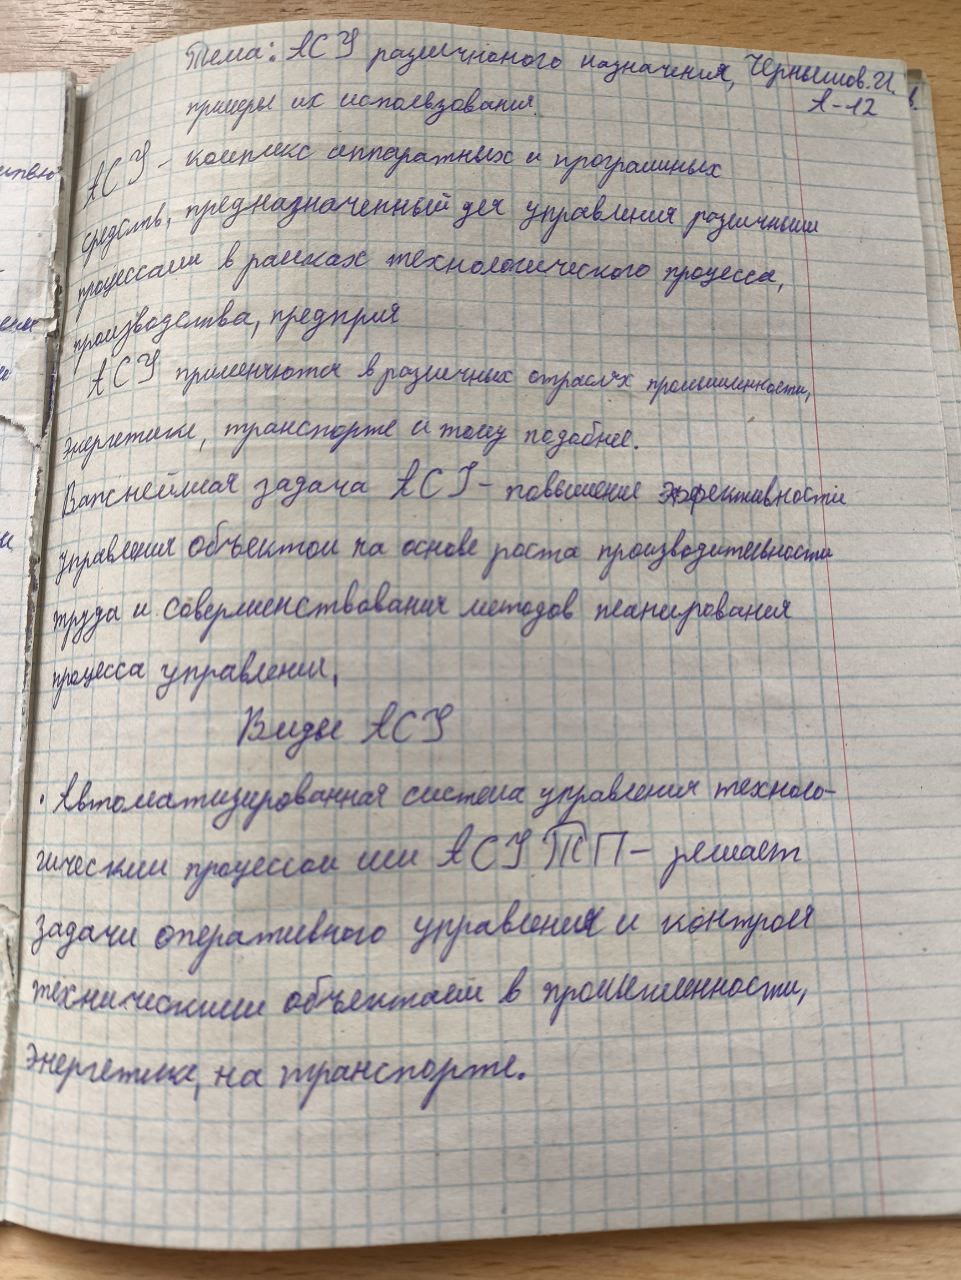 Тема: АСУ различного назначения, Чернышов.И.
примеры их использования. А-12
АСУ - комплекс аппаратных и програмных
средств, предназначенный для управления различными
процессами в рамках технологического процесса,
производства, предприя
АСУ применяются в различных отраслях промышленности,
энергетике, транспорте и тому подобнее.
Важнейшая задача АСУ - повышение эффективности
управления объектом на основе роста производительности
труда и совершенствования методов планирования
процесса управления.
Виды АСУ
· Автоматизированная система управления техноло-
гическим процессом или АСУ ТП - решает
задачи оперативного управления и контроля
техническими объектами в промышленности,
энергетике, на транспорте.